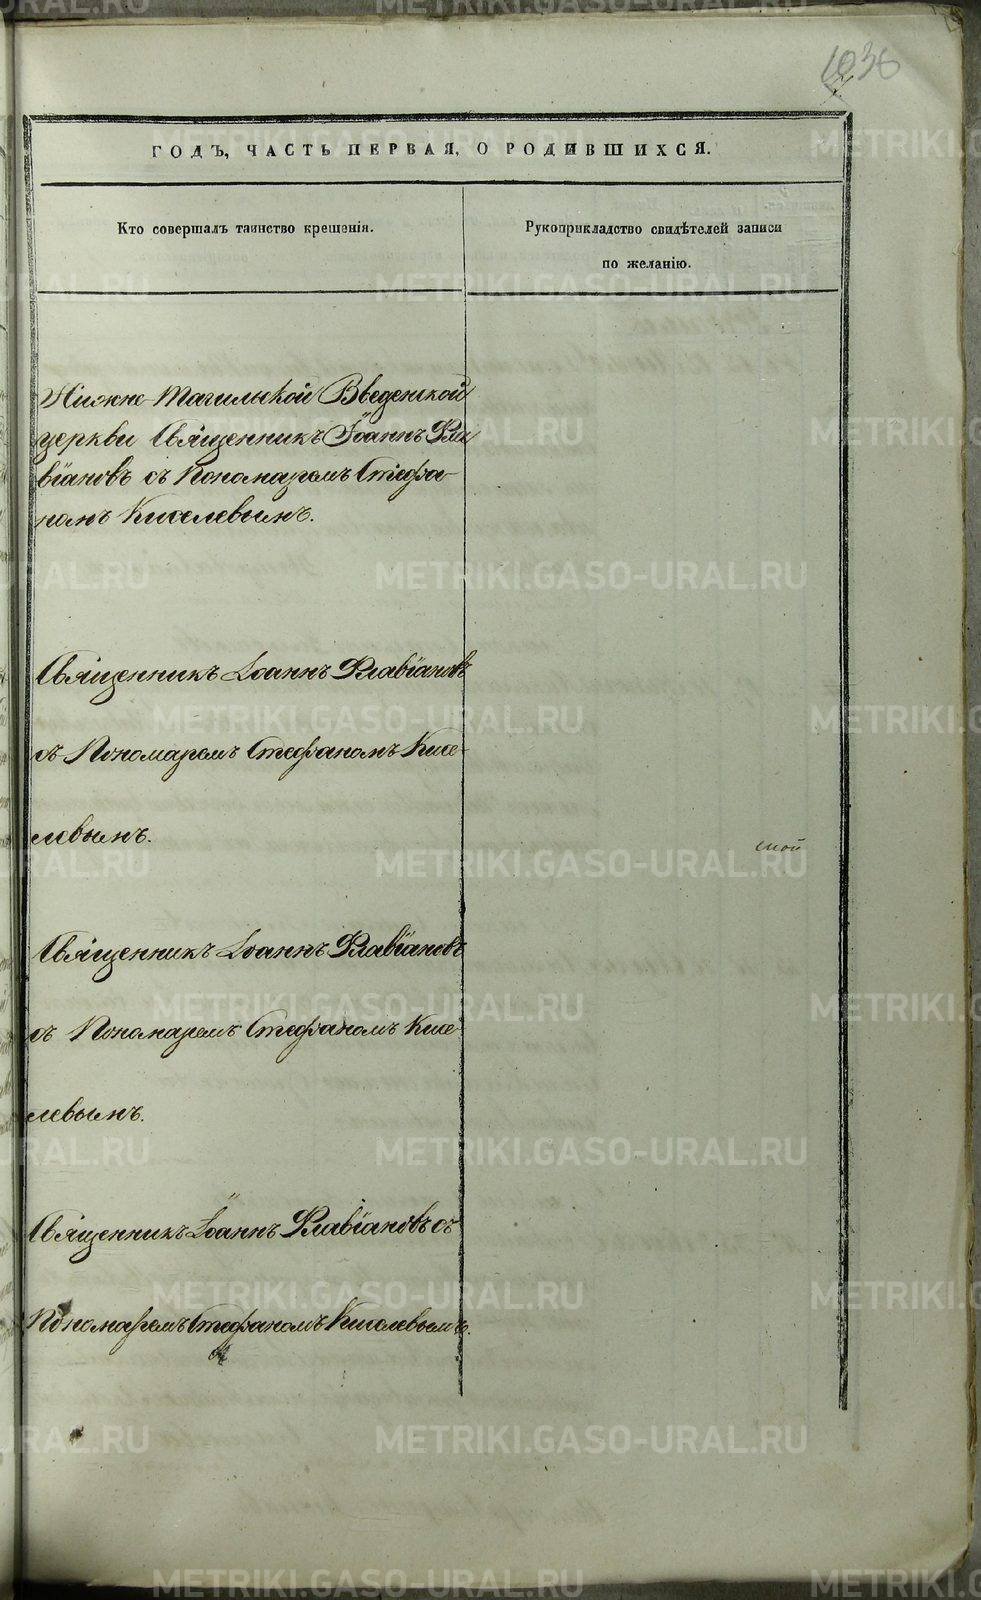 1036
ГОДЪ, ЧАСТЬ ПЕРВАЯ, О РОДИВШИХСЯ.
Кто совершалъ таинство крещенія.
Рукоприкладство свидѣтелей записи
по желанію.
Нижне-Тагильской Введенской
церкви Священникъ Іоаннъ Фла
віановъ съ Пономаремъ Стефа-
номъ Киселевымъ.
Священникъ Іоаннъ Флавіановъ
съ Пономаремъ Стефаномъ Кисе-
левымъ.
Священникъ Іоаннъ Флавіановъ
съ Пономаремъ Стефаномъ Кисе-
левымъ.
Священникъ Іоаннъ Флавіановъ съ
Пономаремъ Стефаномъ Киселевымъ.
METRIKI.GASO-URAL.RU